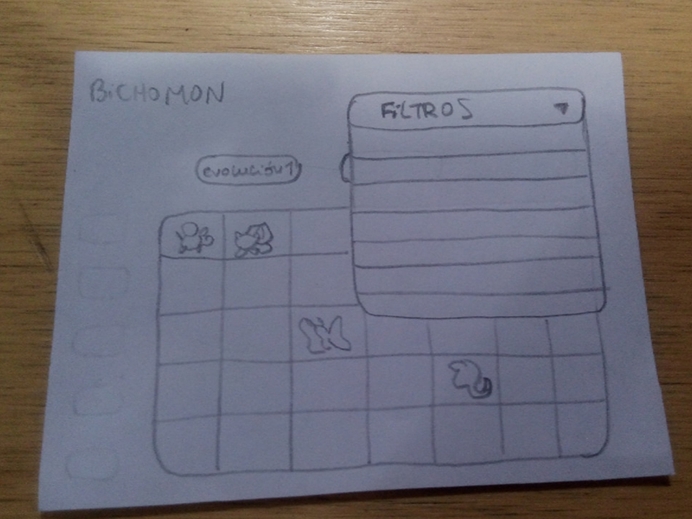 BiCHOMON
FiLTROS
evolución1